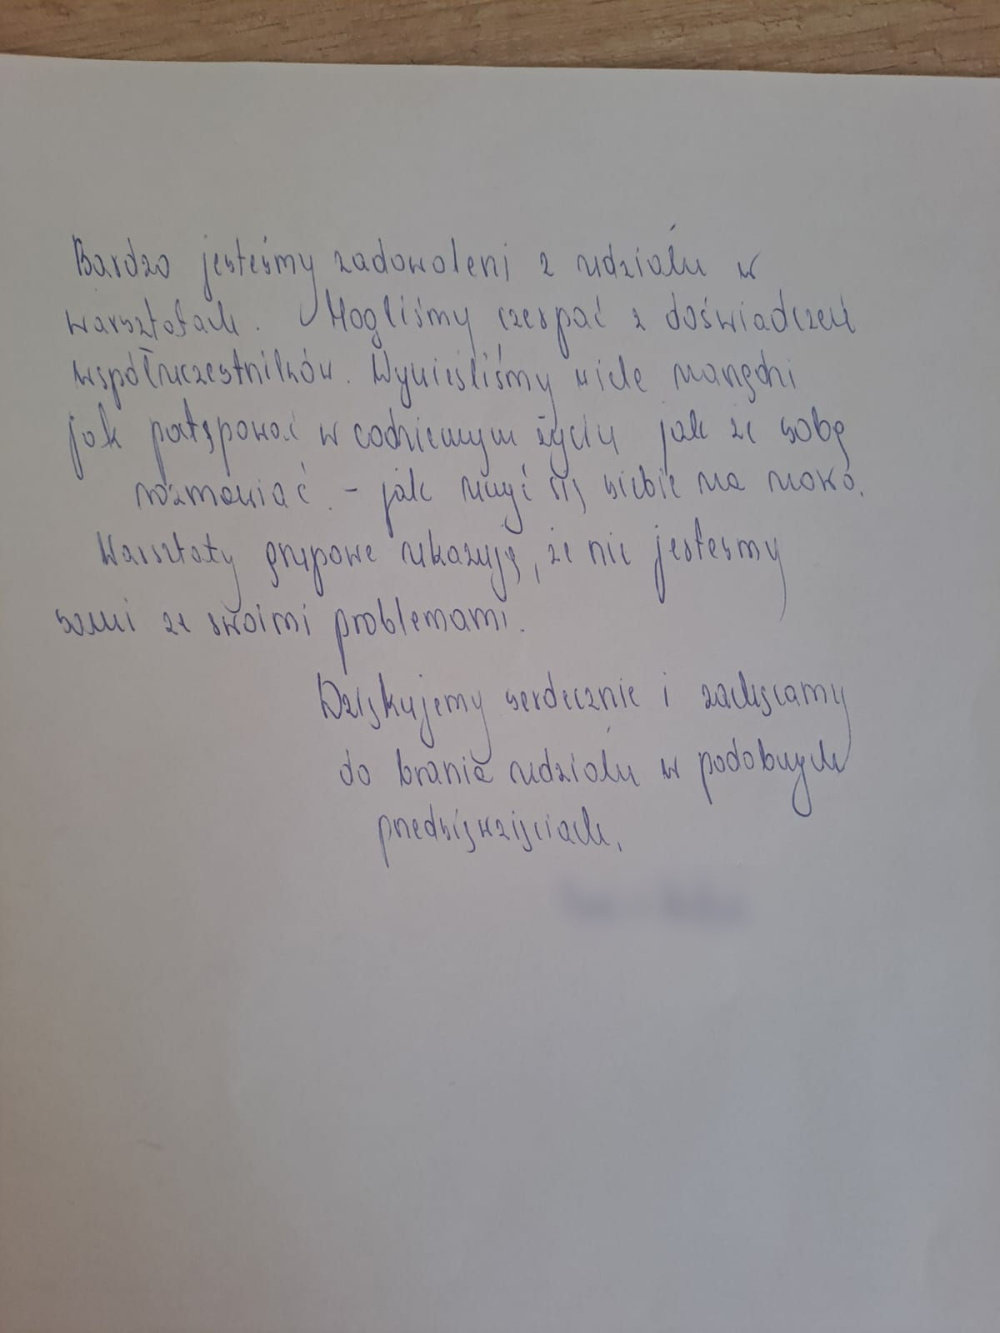 Bardzo jesteśmy zadowoleni z udziału w
warsztatach. Mogliśmy czerpać z doświadczeń
współuczestników. Wynieśliśmy wiele narzędzi
jak postępować w codziennym życiu jak ze sobą
rozmawiać - jak uczyć się siebie na nowo.
Warsztaty grupowe ukazują, że nie jesteśmy
sami ze swoimi problemami.
Dziękujemy serdecznie i zachęcamy
do brania udziału w podobnych
przedsięwzięciach.